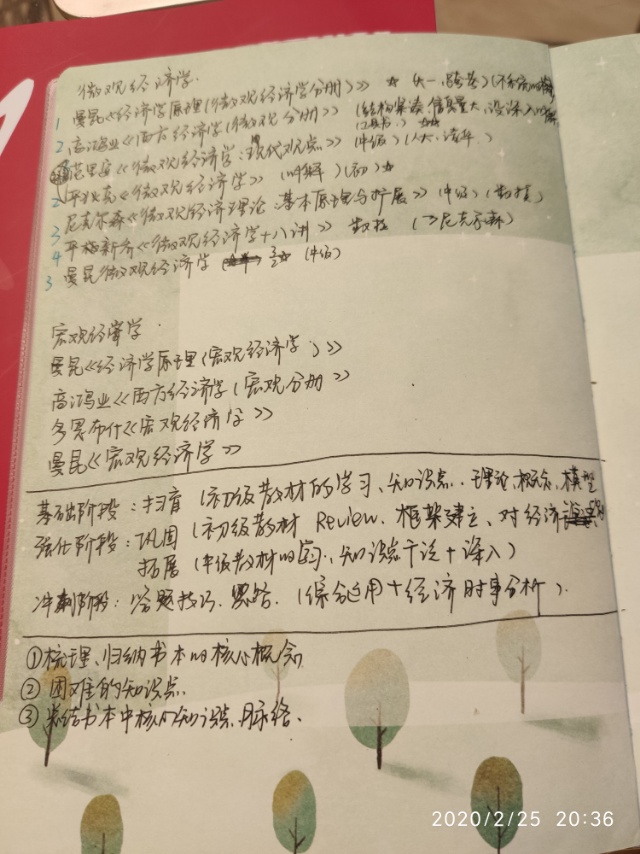 微观经济学.
1 曼昆《经济学原理(微观经济学分册)》 ☆
2 高鸿业《西方经济学(微观分册)》 (结构紧凑 信息量大, 没深入讲解
(工具书) ☆☆
范里安《微观经济学:现代观点》 (中级)
2 平狄克《微观经济学》 (讲解) (初) ☆
3 尼克尔森《微观经济理论 基本原理与扩展》 (中级)
4 平新乔《微观经济学十八讲》
3 曼昆《微观经济学 (中级)
宏观经济学
曼昆《经济学原理(宏观经济学)》
高鸿业《西方经济学(宏观分册》
多恩布什《宏观经济学》
曼昆《宏观经济学》
基础阶段: 扫盲 (初级教材的学习、知识点、理论、概念、模型
强化阶段: 巩固 (初级教材 Review、框架建立、对经济
拓展 (中级教材的学习、知识点广泛+深入)
冲刺阶段: 答题技巧、思路. (综合运用+经济时事分析).
①梳理、归纳书本的核心概念
② 困难的知识点.
③ 总结书本中核心知识点、脉络.
2020/2/25 20:36